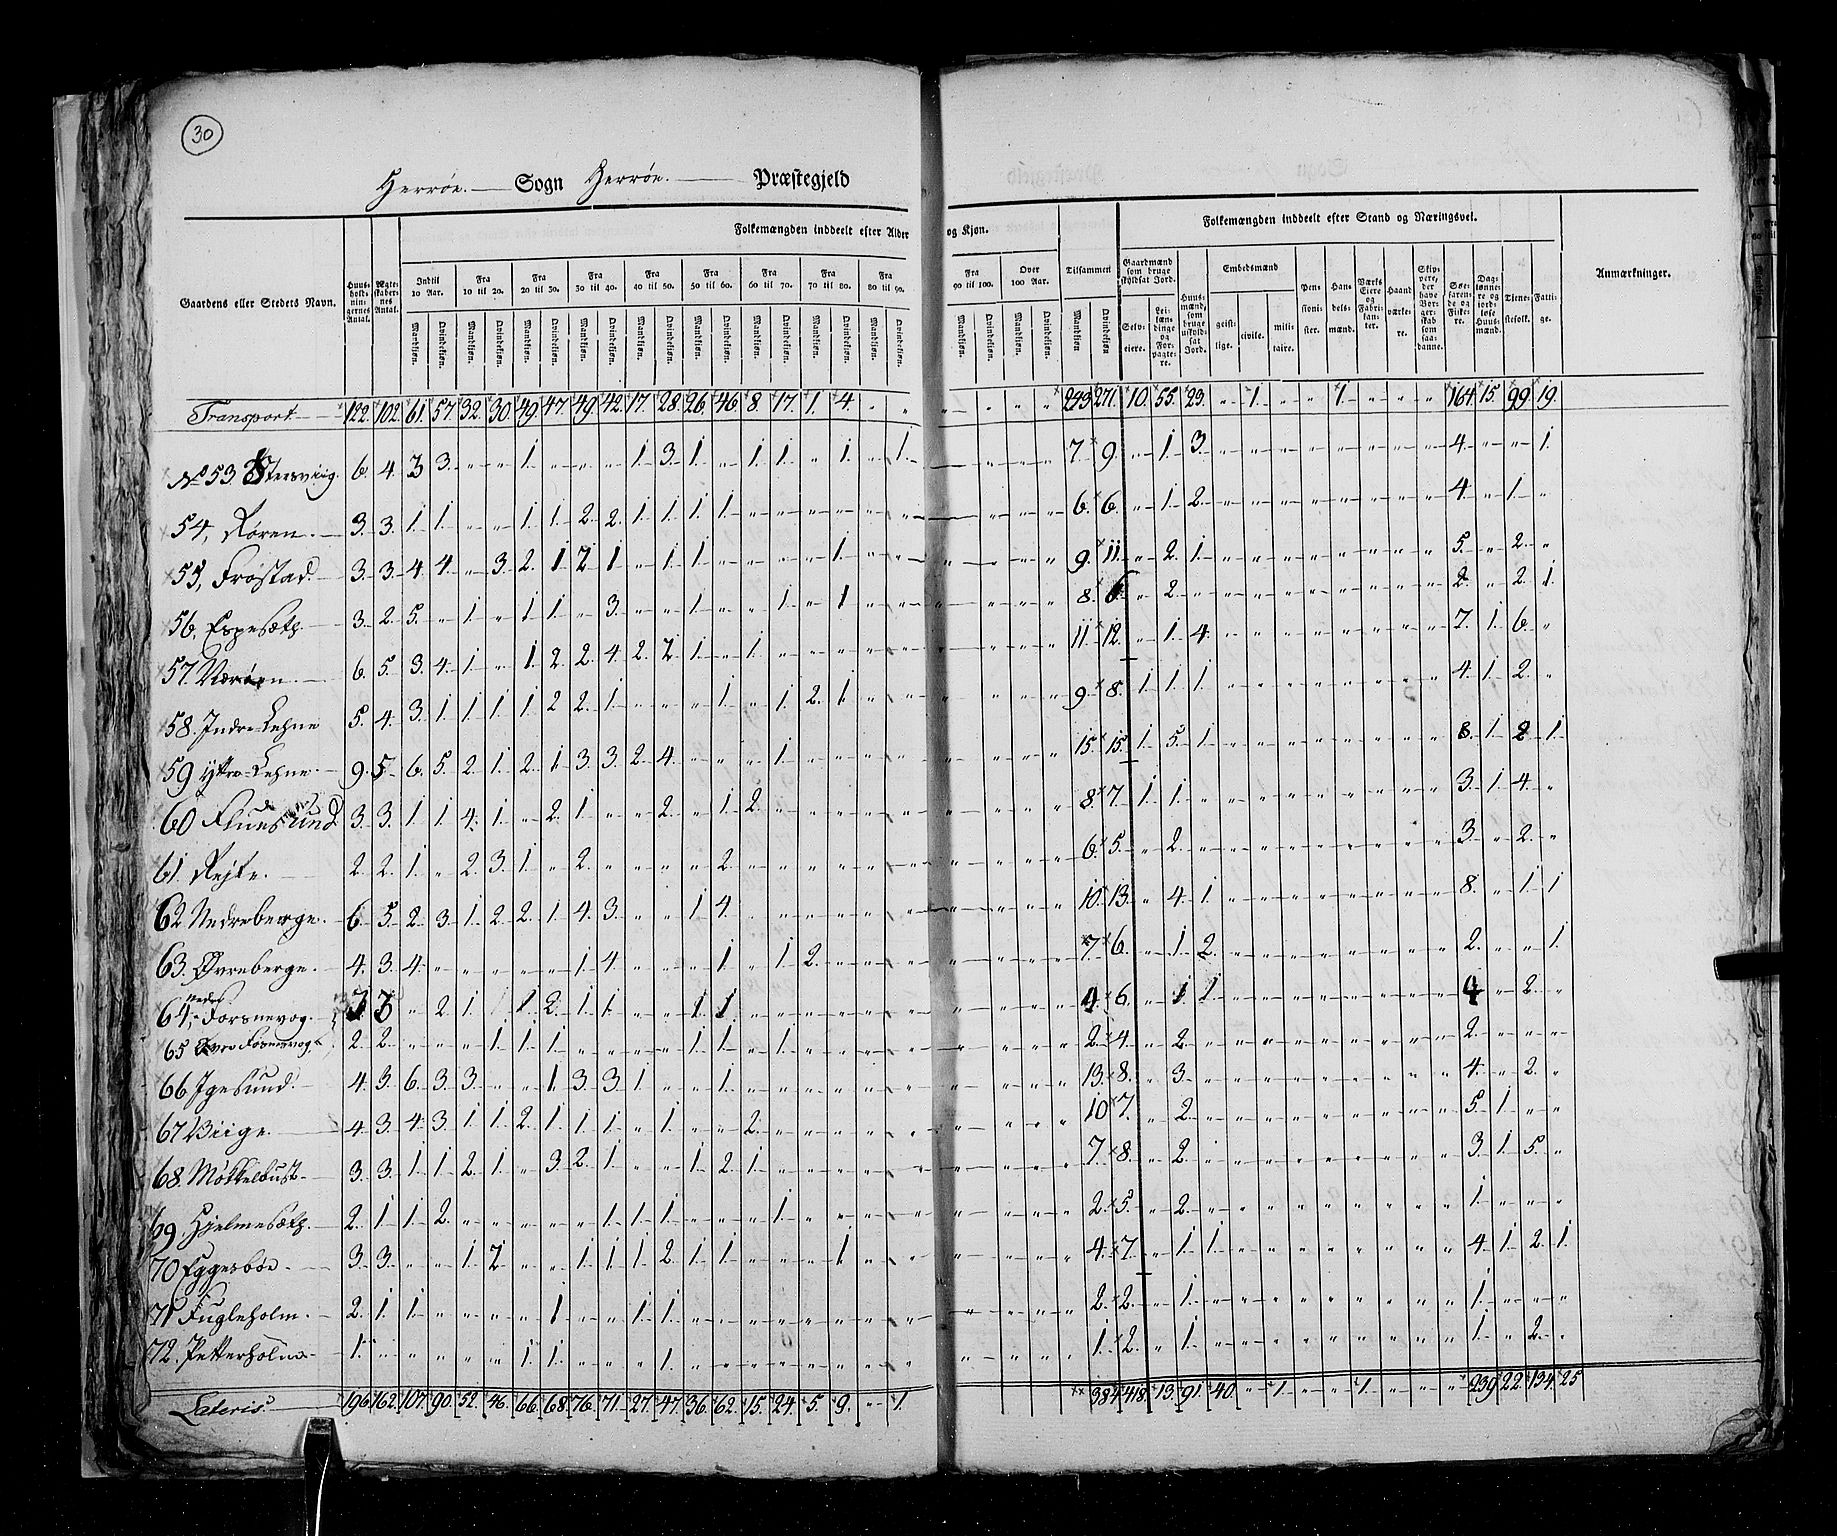 30
Herrøe. Sogn Herrøe. Præstegjeld
Gaardens eller Stedets Navn.
Huusholdningernes Antal.
Ægteskabernes Antal.
Folkemængden inddeelt efter Alder og Kjøn.
Indtil 10 Aar. Fra 10 til 20. Fra 20 til 30. Fra 30 til 40. Fra 40 til 50. Fra 50 til 60. Fra 60 til 70. Fra 70 til 80. Fra 80 til 90. Fra 90 til 100. Over 100 Aar. Tilsammen
Mandkiøn. Qvindekiøn.
Folkemængden inddeelt efter Stand og Næringsvei.
Gaardmænd som bruge skyldsat Jord.
Selveiere. Leilændinge og Forpagtere.
Huusmænd, som bruge uskyldsat Jord.
Embedsmænd
geistlige. civile. militaire.
Pensionister. Handelsmænd. Værks Eiere og Fabrikanter. Haandværkere. Skippere, der have Borgerskab som saadanne. Søefarende og Fiskere. Dagslønnere og jordløse Huusmænd. Tienestefolk. Fattige.
Anmærkninger.
Transport 122. 102. 61. 57. 32. 30. 49. 47. 49. 42. 17. 28. 26. 46. 8. 17. 1. 4. „ „ „ „ „ „ 243 271. 10. 55. 23. „ 1. „ „ 1. „ „ „ 164. 15. 99. 19.
No 53. 6. 4. 3 3. „ „ 1. „ „ „ 1. 3. 1. „ 1. 1. „ 1. „ 1. 7. 9. „ 1. 3. 4. „ „ 1.
54, Røren. 3. 3. 1. 1. „ „ 1. 1. 2. 2. 1. 1. 1. 1. 6. 6. „ 1. 2. 4. „ 1. „
55, Frøstad. 3. 3. 4. 4. „ 3. 2. 1 2 1. „ 1. 1. „ „ „ 1. 9. 11. „ 2. 1. 5. „ 2. „
56, Espesæth. 3. 2. 5. „ 1. „ 1. 1. „ 3. „ „ 1. „ „ 1. „ 1 8. 6. „ 2. „ 2. „ 2. 1.
57. Nærøen. 6. 5. 3. 4. 1. „ 1. 2. 2. 4. 2. 2. 1. „ 1. 11. 12. „ 1. 4. 7. 1. 6. „
58. Indre Lehne 5. 4. 3. 1. 1. 1. 1. 2 2. 1. „ „ „ 1. „ 1. 2. 1. 9. 8. 1. 1. 1. 4. 1. 2. „
59 Yttre Lehne. 9. 5. 6. 5. 2. 1. 2. 1. 3. 3. 2. 4. „ „ „ 1. 15. 15. 1. 5. 1. 8. 1. 2 1.
60 3. 3. 1. 1. 4. 1. „ 2. 1. „ „ 2. „ 1. 2. 8. 7. 1. 1. „ 3. 1. 4. „
61. Rejte. 2. 2. 1. „ 2. 3. 1. „ 2. „ „ „ „ 2. 6. 5. „ 2. „ 3. „ 2. „
62 Nedreberge. 6. 5. 2. 3. 1. 2. 2. 1. 4. 3. „ „ 1. 4. 10. 13. „ 4. 1. 8. „ 1. 1
63. Øvreberge. 4. 3. 4. „ „ „ „ „ 1. 4. „ „ „ 1. „ 1. 2. 7. 6. „ 1. 2. 2. „ „ 1.
64, Nedre Forsnevog. 3 3 „ 2. 1. 1 2. 1. 1. „ „ 1. 1. 4. 6. „ 1 1. 4. „ 2. „
65 Øvre Forsnevog. 2. 2. „ „ „ 1. 1. 1. „ „ „ „ 1. 1. „ 1. 2. 4. „ 2. „ 2. „ „ „
66 Igesund. 4. 3. 6. 3. 3. „ „ 1. 3. 3. 1. „ „ 1. 13. 8. „ 3. „ 4. „ 2. „
67 Viige. 4. 3. 4. 3. 1. 1. 2. 1. 1. 1. „ 1. „ „ 2. 10. 7. „ 2. „ 5. 1. „ „
68. Møkkelbust. 3. 3. 1. 1. 2. 1. „ 3. 2. 1. „ „ 1. 2. 1. 7. 8. „ 2. „ 3. 1. 5. „
69. Hjelmesæth. 2. 1. 1. 2. „ „ „ „ „ 1. 1. 1. „ „ „ 1. 2. 5. „ 2. „ 1. „ „ „
70 Eggesbøe. 3. 3. „ „ 1. 2. „ „ 1. 1. 1. 2. 1. 1. „ „ „ 1. 4. 7. „ 1. 1. 4. 1. 2. 1.
71 Fugleholm. 2. 1. 1. „ „ „ „ 1. „ „ 1. 1. 2. 2. „ 1. „ 1. „ „ „
72. Petterholm 1. „ „ „ „ „ 1. 1. „ „ „ 1. 1. 2. „ 1. „ 1. „ 2. „
Lateris. 196. 162. 107. 90. 52. 46. 66. 68. 76. 71. 27. 47. 36. 62. 15. 24. 5. 9. „ 1. 384 418. 13. 91. 40. „ 1. „ „ 1. „ „ „ 239. 22. 134. 25